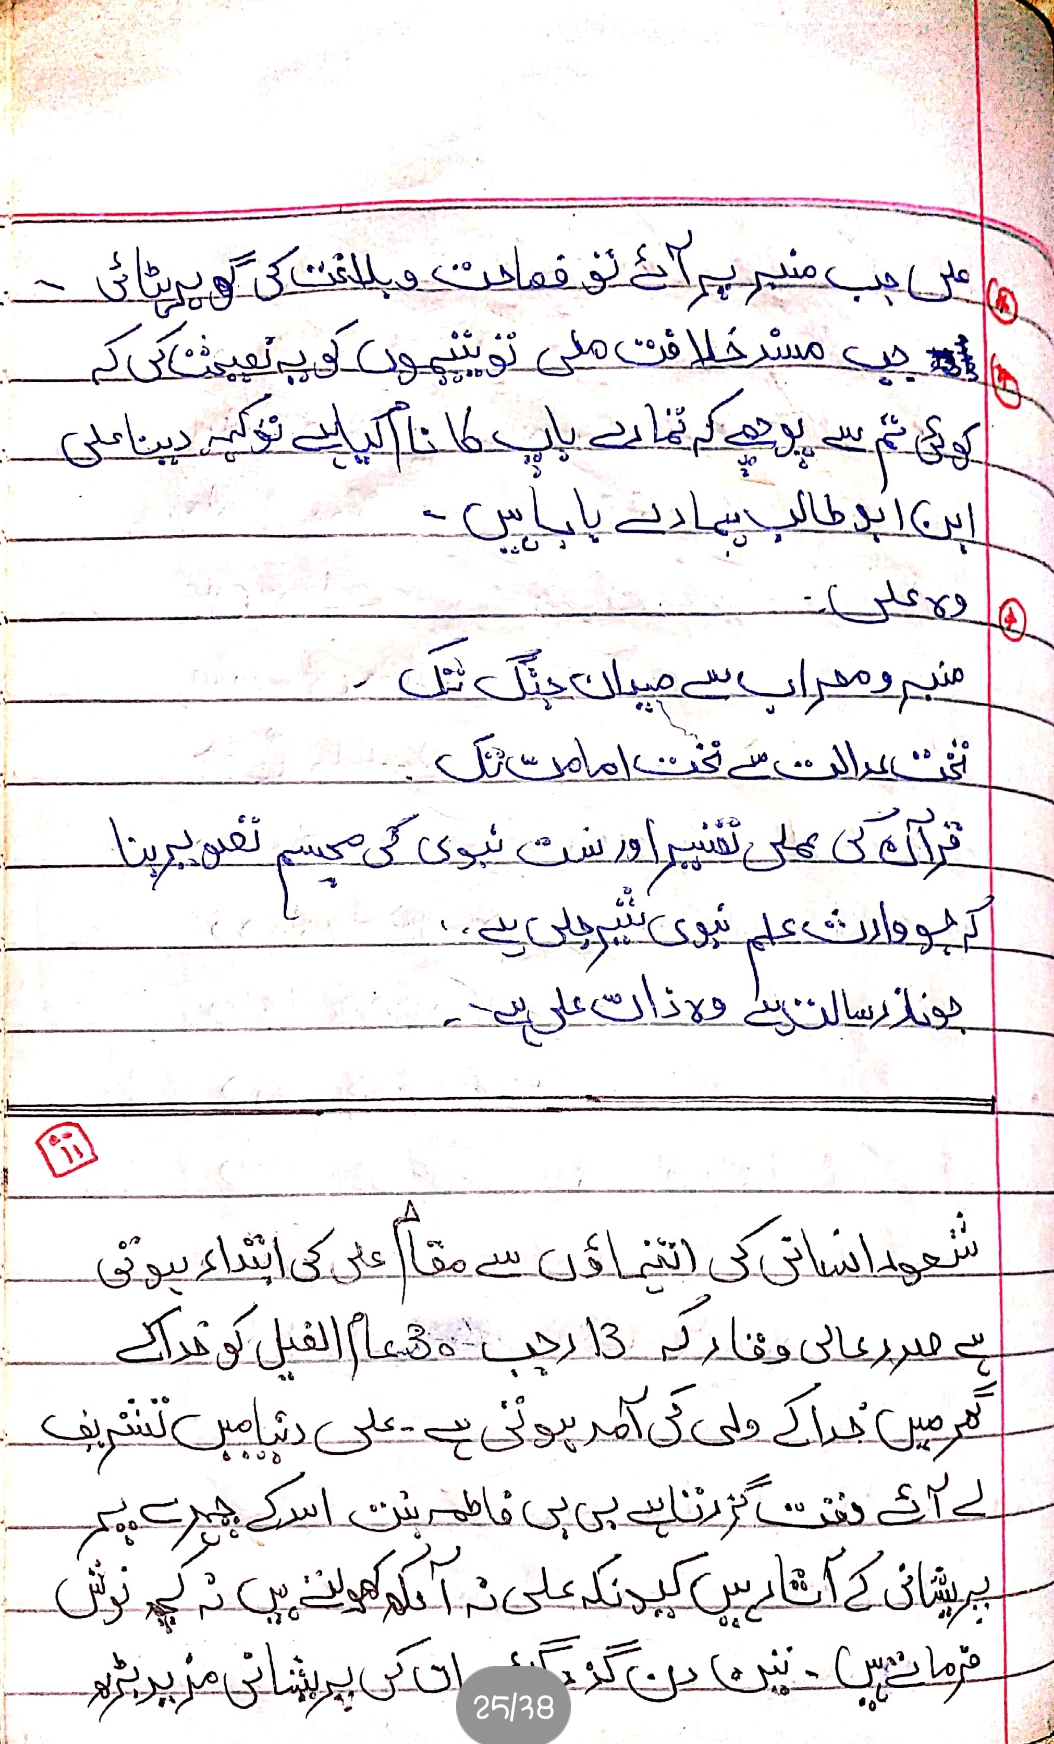 علی جب منبر پر آئے تو فصاحت و بلاغت کی گوہر بٹائی ۔
جب مسند خلافت ملی تو یتیموں کو یہ نصیحت کی کہ
کوئی تم سے پوچھے کہ تمارے باپ کا نام کیا ہے تو کہہ دینا علی
ابن ابو طالب ہمارے بابا ہیں ۔
وہ علی :
منبر و محراب سے میدان جنگ تک ۔
تخت عدالت سے تخت امامت تک ۔
قرآن کی عملی تفسیر اور سنت نبوی کی مجسم تصویر بنا
کہ جو وارث علم نبوی علی ہے ۔
رسالت ہے وہ ذات علی ہے ۔
11
شعور انسانی کی انتہاؤں سے مقام علی کی ابتداء ہوتی
ہے صدر عالی وقار کہ 13 رجب 30 عام الفیل کو خدا کے
گھر میں خدا کے ولی کی آمد ہوتی ہے ۔ علی دنیا میں تشریف
لے آئے وقت گزرتا ہے بی بی فاطمہ بنت اسد کے چہرے پر
پریشانی کے آثار ہیں کیونکہ علی نہ آنکھ کھولتے ہیں نہ کچھ نوش
فرماتے ہیں ۔ تین دن گزر گئے ان کی پریشانی مزید بڑھ
25/38